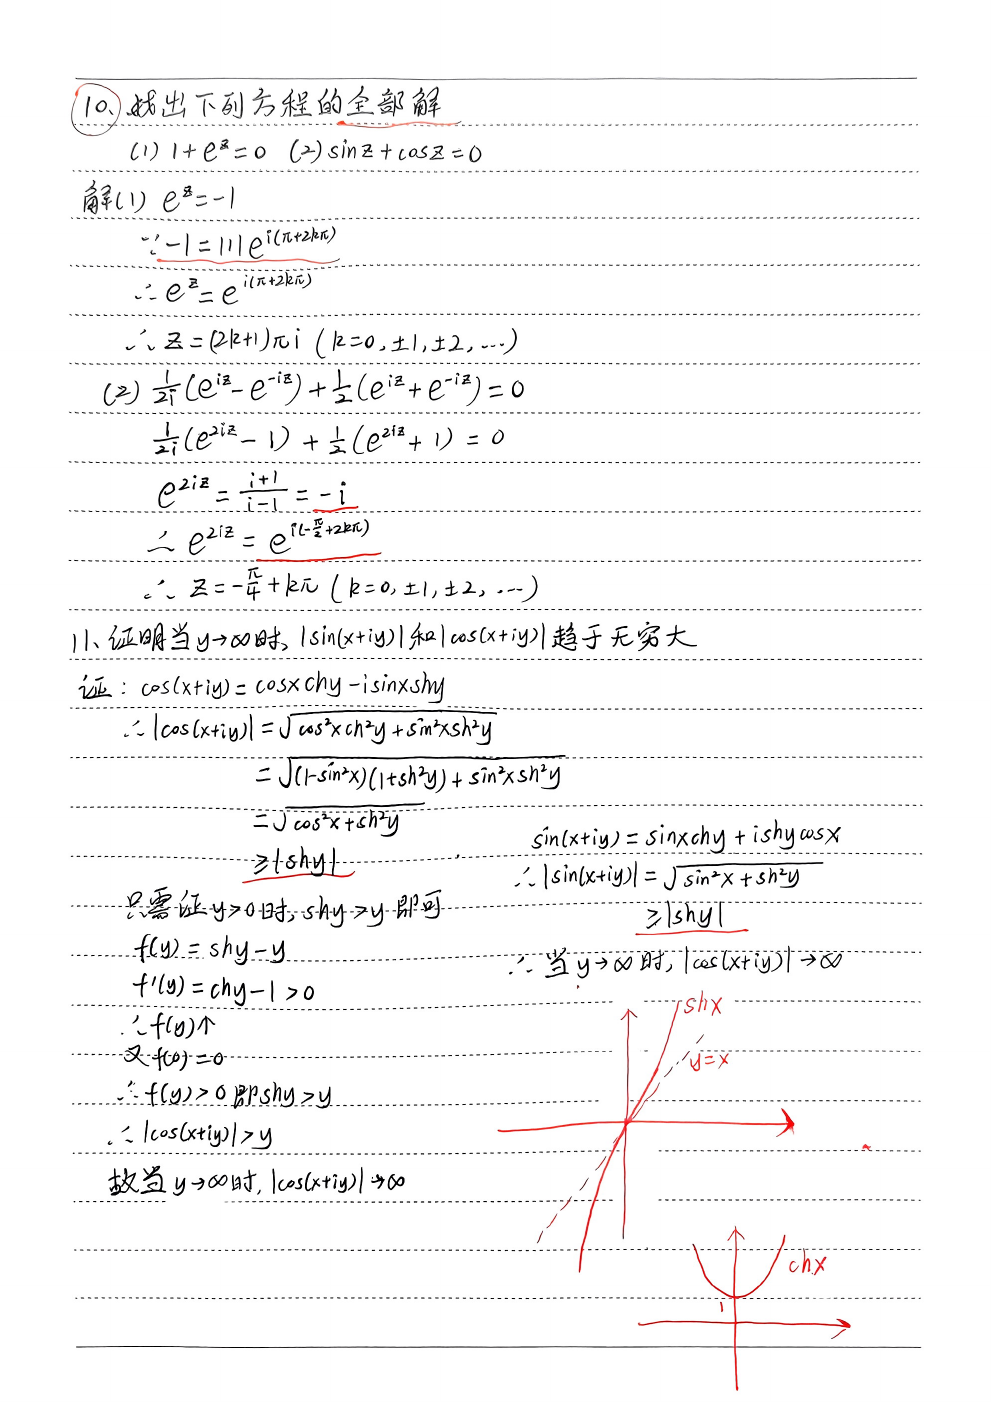 10、找出下列方程的全部解
(1) 1+e^z=0 (2) sinz+cosz=0
解(1) e^z=-1
∵ -1=|1|e^{i(π+2kπ)}
∴ e^z=e^{i(π+2kπ)}
∴ z=(2k+1)πi (k=0,±1,±2,…)
(2) 1/2i(e^{iz}-e^{-iz})+1/2(e^{iz}+e^{-iz})=0
1/2i(e^{2iz}-1)+1/2(e^{2iz}+1)=0
e^{2iz}=(i+1)/(i-1)=-i
∴ e^{2iz}=e^{i(-π/2+2kπ)}
∴ z=-π/4+kπ (k=0,±1,±2,…)
11、证明当y→∞时,|sin(x+iy)|和|cos(x+iy)|趋于无穷大
证：cos(x+iy)=cosxchy-isinxshy
∴|cos(x+iy)|=√(cos²xch²y+sin²xsh²y)
=√((1-sin²x)(1+sh²y)+sin²xsh²y)
=√(cos²x+sh²y)
≥|shy|
只需证y>0时,shy>y即可
f(y)=shy-y
f'(y)=chy-1>0
∴f(y)↑
又f(0)=0
∴f(y)>0即shy>y
∴|cos(x+iy)|>y
故当y→∞时,|cos(x+iy)|→∞
sin(x+iy)=sinxchy+ishycosx
∴|sin(x+iy)|=√(sin²x+sh²y)
≥|shy|
∴当y→∞时,|cos(x+iy)|→∞
shx
y=x
chx
1